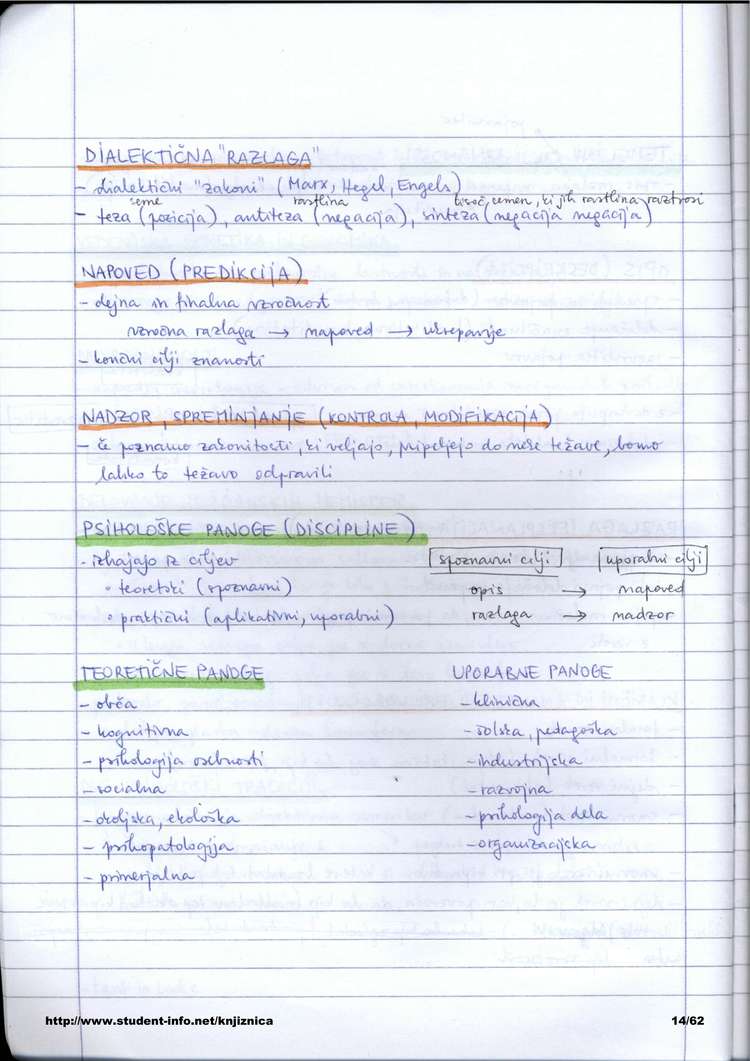 DIALEKTIČNA "RAZLAGA"
- dialektični "zakoni" (Marx, Hegel, Engels)
seme rastlina tisoč semen, ki jih rastlina raztrosi
- teza (pozicija), antiteza (negacija), sinteza (negacija negacija)
NAPOVED (PREDIKCIJA)
- dejna in finalna vzročnost
vzročna razlaga → napoved → ukrepanje
- končni cilji znanosti
NADZOR, SPREMINJANJE (KONTROLA, MODIFIKACIJA)
- če poznamo zakonitosti, ki veljajo, pripeljejo do neke težave, bomo
lahko to težavo odpravili
PSIHOLOŠKE PANOGE (DISCIPLINE)
- izhajajo iz ciljev spoznavni cilji uporabni cilji
• teoretski (spoznavni) opis → napoved
• praktični (aplikativni, uporabni) razlaga → nadzor
TEORETIČNE PANOGE UPORABNE PANOGE
- obča - klinična
- kognitivna - šolska, pedagoška
- psihologija osebnosti - industrijska
- socialna - razvojna
- okoljska, ekološka - psihologija dela
- psihopatologija - organizacijska
- primerjalna
http://www.student-info.net/knjiznica 14/62